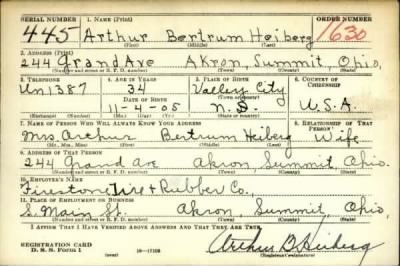 SERIAL NUMBER 1. NAME (Print) ORDER NUMBER
445 Arthur Bertrum Heiberg 1630
(First) (Middle) (Last)
2. ADDRESS (Print)
244 Grand Ave Akron, Summit, Ohio,
(Number and street or R. F. D. number) (Town) (County) (State)
3. TELEPHONE 4. AGE IN YEARS 5. PLACE OF BIRTH 6. COUNTRY OF CITIZENSHIP
Un 1387 34 Valley City
DATE OF BIRTH (Town or county)
11-4-05 N.D. U.S.A.
(Exchange) (Number) (Mo.) (Day) (Yr.) (State or country)
7. NAME OF PERSON WHO WILL ALWAYS KNOW YOUR ADDRESS 8. RELATIONSHIP OF THAT PERSON
Mrs. Arthur Bertrum Heiberg Wife
(Mr., Mrs., Miss) (First) (Middle) (Last)
9. ADDRESS OF THAT PERSON
244 Grand Ave Akron, Summit Ohio.
(Number and street or R. F. D. number) (Town) (County) (State)
10. EMPLOYER'S NAME
Firestone Tire & Rubber Co.
11. PLACE OF EMPLOYMENT OR BUSINESS
S. Main St. Akron, Summit, Ohio,
(Number and street or R. F. D. number) (Town) (County) (State)
I AFFIRM THAT I HAVE VERIFIED ABOVE ANSWERS AND THAT THEY ARE TRUE.
REGISTRATION CARD
D. S. S. FORM 1 (over) Arthur B Heiberg
(Registrant's signature)